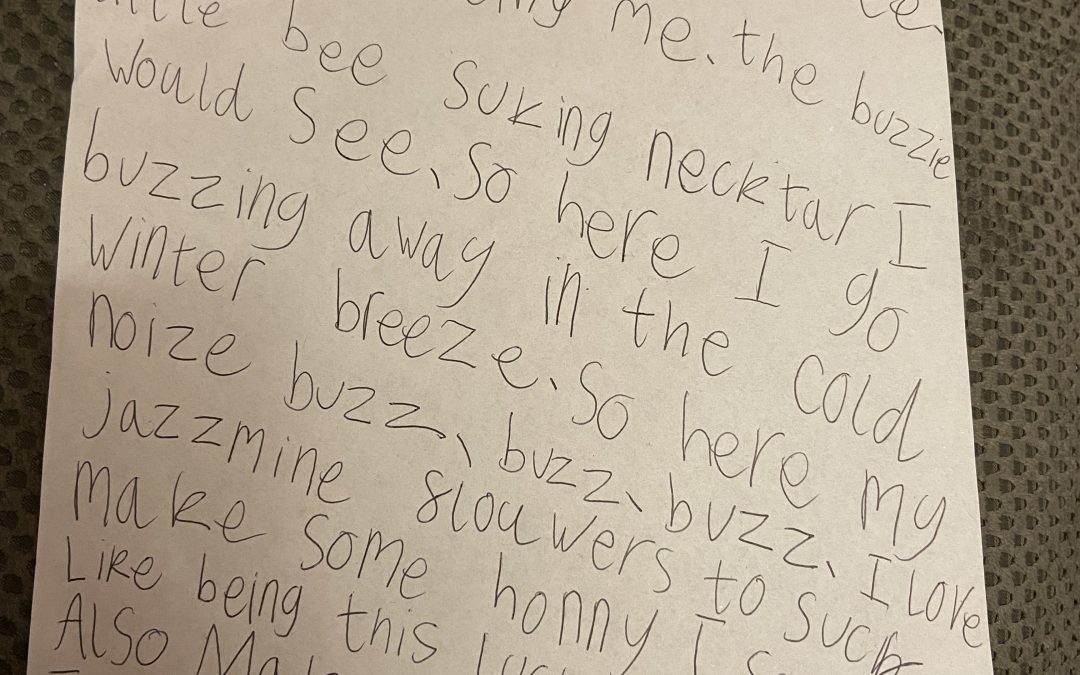 me, the buzzie
little bee suking necktar I
Would See, So here I go
buzzing away in the cold
Winter breeze, So here my
noize buzz, buzz, buzz, I love
jazzmine flouwers to suck
make some honny I
Like being this
Also